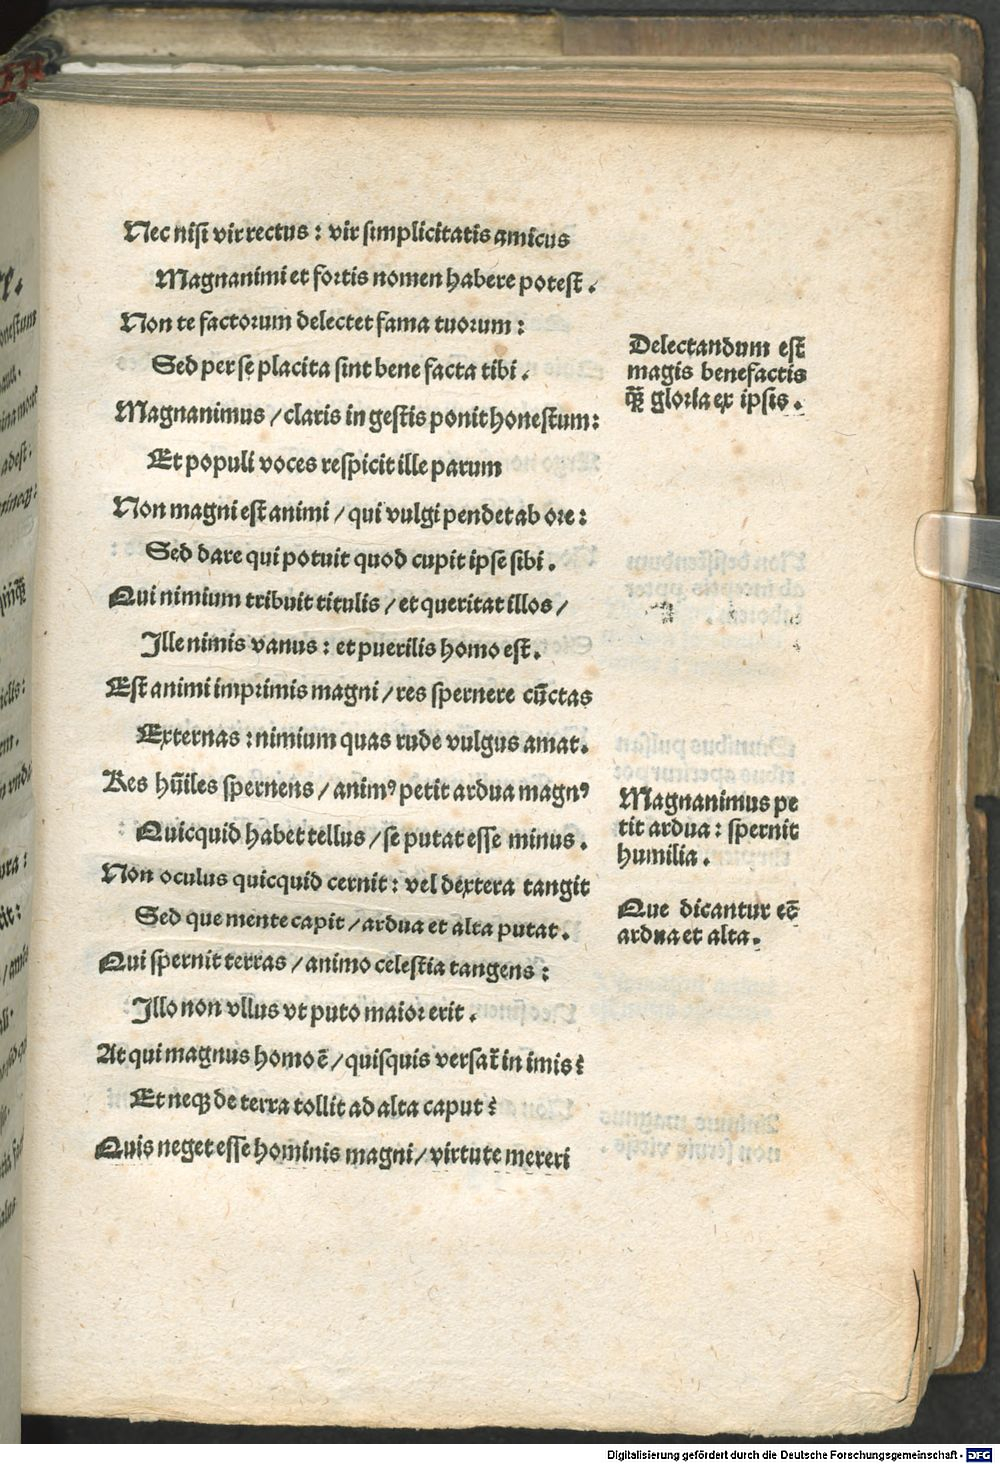 Nec nisi vir rectus : vir simplicitatis amicus
Magnanimi et fortis nomen habere potest .
Non te factorum delectet fama tuorum :
Sed per se placita sint bene facta tibi .
Magnanimus / claris in gestis ponit honestum :
Et populi voces respicit ille parum
Non magni est animi / qui vulgi pendet ab ore :
Sed dare qui potuit quod cupit ipse sibi .
Qui nimium tribuit titulis / et queritat illos /
Ille nimis vanus : et puerilis homo est .
Est animi imprimis magni / res spernere cūctas
Externas : nimium quas rude vulgus amat .
Res hūiles spernens / animꝰ petit ardua magnꝰ
Quicquid habet tellus / se putat esse minus .
Non oculus quicquid cernit : vel dextera tangit
Sed que mente capit / ardua et alta putat .
Qui spernit terras / animo celestia tangens :
Illo non vllus vt puto maior erit .
At qui magnus homo ē / quisquis versat̄ in imis ?
Et neqꝫ de terra tollit ad alta caput ?
Quis neget esse hominis magni / virtute mereri
Delectandum est
magis benefactis
q̄ꝫ gloria ex ipsis .
Magnanimus pe
tit ardua : spernit
humilia .
Que dicantur eē
ardua et alta .
Digitalisierung gefördert durch die Deutsche Forschungsgemeinschaft - DFG